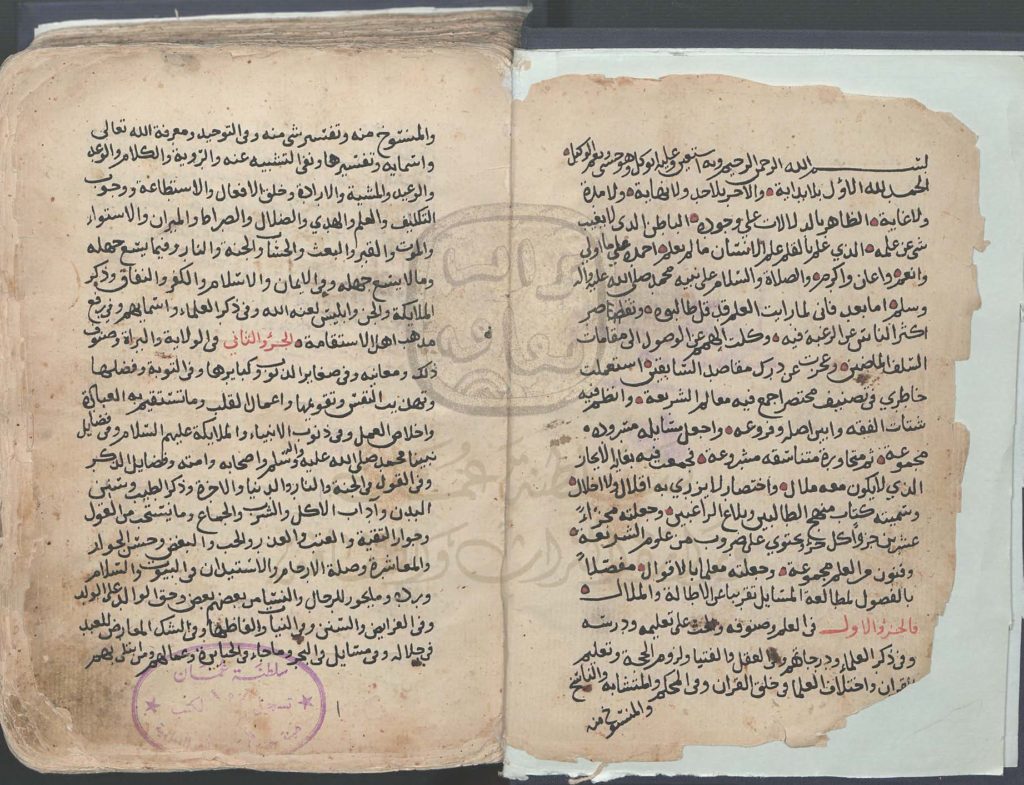 بسم الله الرحمن الرحيم وبه استعين وعليه اتوكل وهو حسبي ونعم الوكيل
الحمد لله الاول بلا بداية والاخر بلا حد ولا نهاية ولا مدة
ولا غاية الظاهر بالدلالات على وجوده الباطن الذي لا يغيب
شئ عن علمه الذي علم بالقلم علم الانسان مالم يعلم احمده على ما اولى
وانعم واعان واكرم والصلاة والسلام على نبيه محمد صلى الله عليه واله
وسلم اما بعد فاني لما رايت العلم قد قل طالبوه وتقطعا
اكثر الناس عن الرغبة فيه وكلت الهمم عن الوصول الى مقامات
السلف الماضين وعجزت عن درك مقاصد السابقين استعملت
خاطري في تصنيف مختصر اجمع فيه معالم الشريعة وانظم فيه
شتات الفقه وابين اصله وفروعه واجعل مسايله مسروده
مجموعة ثم متجاورة متناسقه مشروعه فجمعت فيه بغاية الايجاز
الذي لا يكون معه ملال واختصار لا يزري به اقلال ولا اخلال
وسميته كتاب منهج الطالبين وبلاغ الراغبين وجعلته مجزءاً
عشرين جزءاً كل جزء يحتوي على ضروب من علوم الشريعة
وفنون من العلم مجموعة وجعلته معلما بالاقوال مفصلاً
بالفصول لمطالعة المسايل تقريبا عن الاطالة والملال
فالجزؤ الاول في العلم وصنوفه والحث على تعليمه ودرسه
وفي ذكر العلماء ودرجاتهم وفي العقل والفتيا ولزوم الحجة وتعليم
القران واختلاف العلما في خلق القران وفي المحكم والمتشابه والناسخ
والمنسوخ منه
والمنسوخ منه وتفسير شئ منه وفي التوحيد ومعرفة الله تعالى
واسمايه وتفسيرها ونفي التشبيه عنه والرؤية والكلام والوعد
والوعيد والمشية والارادة وخلق الافعال والاستطاعة ووجوب
التكليف والعلم والهدي والضلال والصراط والميزان والاستوار
والموت والقبر والبعث والحساب والجنه والنار وفيما يسع جهله
وما لا يسع جهله وفي الايمان والاسلام والكفر والنفاق وذكر
الملايكة والجن وابليس لعنه الله وفي ذكر العلماء واسمايهم وفي رفع
مذهب اهل الاستقامة الجزؤ الثاني في الولاية والبراة وصنوف
ذلك ومعانيه وفي صغاير الذنوب وكبايرها وفي التوبة وفضلها
وتهذيب النفس وتقويمها واعمال القلب وما تستقيم به العبادة
واخلاص العمل وفي ذنوب الانبياء والملايكة عليهم السلام وفي فضايل
نبينا محمد صلى الله عليه واله وسلم واصحابه وامته وفضايل الذكر
وفي القول في الجنة والنار والدنيا والاخرة وذكر الطب وسنن
البدن واداب الاكل والشرب والجماع وما يستحب من القول
وجواز التقية والعتب والعذر والحب والبغض وحسن الجوار
والمعاشرة وصلة الارحام والاستيذان في البيوت والسلام
ورده وما يجوز للرجال والنساء من بعضهم بعض وحق الوالد على الولد
وفي الفرايض والسنن وفي النيات والفاظها وفي الشك المعارض للعبد
في حلاله وفي مسايل في البحر وما جاء في الجبابرة وعمالهم ومن ابتلي بهم
١
سلطنة عمان